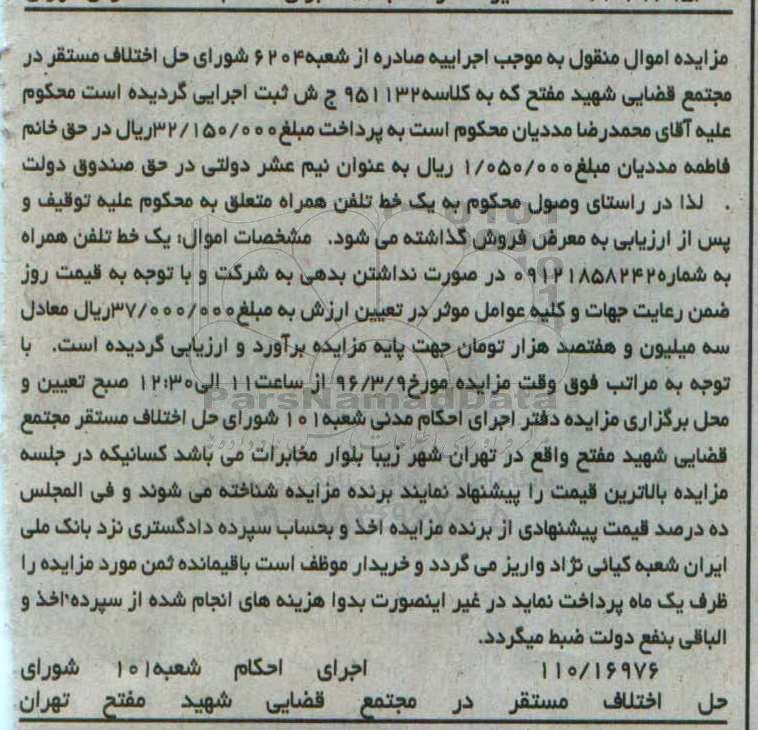 مزایده اموال منقول به موجب اجراییه صادره از شعبه۶۲۰۴ شورای حل اختلاف مستقر در
مجتمع قضایی شهید مفتح که به کلاسه۹۵۱۱۳۲ ج ش ثبت اجرایی گردیده است محکوم
علیه آقای محمدرضا مددیان محکوم است به پرداخت مبلغ۳۲/۱۵۰/۰۰۰ریال در حق خانم
فاطمه مددیان مبلغ۱/۰۵۰/۰۰۰ ریال به عنوان نیم عشر دولتی در حق صندوق دولت
. لذا در راستای وصول محکوم به یک خط تلفن همراه متعلق به محکوم علیه توقیف و
پس از ارزیابی به معرض فروش گذاشته می شود. مشخصات اموال: یک خط تلفن همراه
به شماره۰۹۱۲۱۸۵۸۲۴۲ در صورت نداشتن بدهی به شرکت و با توجه به قیمت روز
ضمن رعایت جهات و کلیه عوامل موثر در تعیین ارزش به مبلغ۳۷/۰۰۰/۰۰۰ریال معادل
سه میلیون و هفتصد هزار تومان جهت پایه مزایده برآورد و ارزیابی گردیده است. با
توجه به مراتب فوق وقت مزایده مورخ۹۶/۳/۹ از ساعت۱۱ الی۱۲:۳۰ صبح تعیین و
محل برگزاری مزایده دفتر اجرای احکام مدنی شعبه۱۰۱ شورای حل اختلاف مستقر مجتمع
قضایی شهید مفتح واقع در تهران شهر زیبا بلوار مخابرات می باشد کسانیکه در جلسه
مزایده بالاترین قیمت را پیشنهاد نمایند برنده مزایده شناخته می شوند و فی المجلس
ده درصد قیمت پیشنهادی از برنده مزایده اخذ و بحساب سپرده دادگستری نزد بانک ملی
ایران شعبه کیائی نژاد واریز می گردد و خریدار موظف است باقیمانده ثمن مورد مزایده را
ظرف یک ماه پرداخت نماید در غیر اینصورت بدوا هزینه های انجام شده از سپرده اخذ و
الباقی بنفع دولت ضبط میگردد.
۱۱۰/۱۶۹۷۶ اجرای احکام شعبه۱۰۱ شورای
حل اختلاف مستقر در مجتمع قضایی شهید مفتح تهران
ParsNamadData